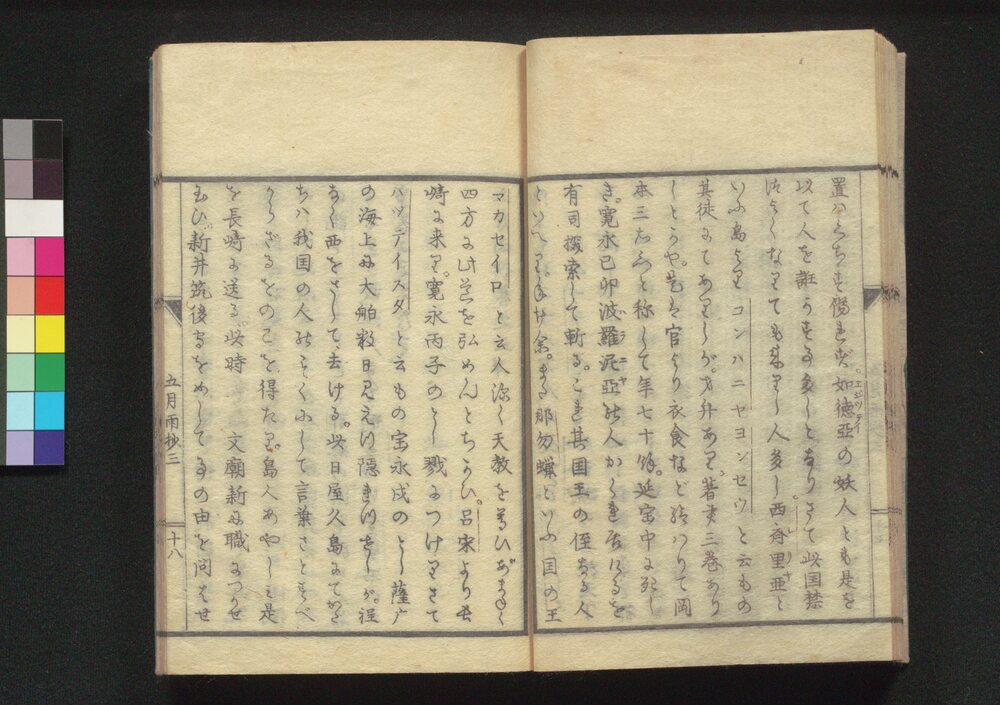 置はくちも傷まず如徳亜の妖人とも是を
以て人を誑うする多しとなり。さて此国禁
は年七十餘。延宝中
いふ島より コンハニヤヨンセウ と云もの
其徒にてありしが。才弁あり。著書三巻あり
しとかや。是は官より衣食など給はりて岡
本三右衛門と称して年七十餘。延宝中に死し
き。寛永己卯波羅泥亜の人かくれ居けるを
有司探索して斬る。これ其国王の侄なる人
といへり。年廿余。また那勿蠟といふ国の王
マカセイロ と云人深く天教を
四方に此芸を弘めんとちかひ。呂宋より長
崎に来り。寛永丙子のとし戮につけり。さて
ハッテイスタ と云もの宝永戌のとし薩广
の海上に大舶数日見えつ隠れつせしが。従
なく西をさして去ける。此日屋久島にて
ちは我国の人のごとくにして言葉さとすべ
からざるをのこを得たり。島人あやしみ是
を長崎に送る。此時 文廟新に職につかせ
玉ひ。新井筑後守をめして事の由を問はせ
五月雨抄三
十八